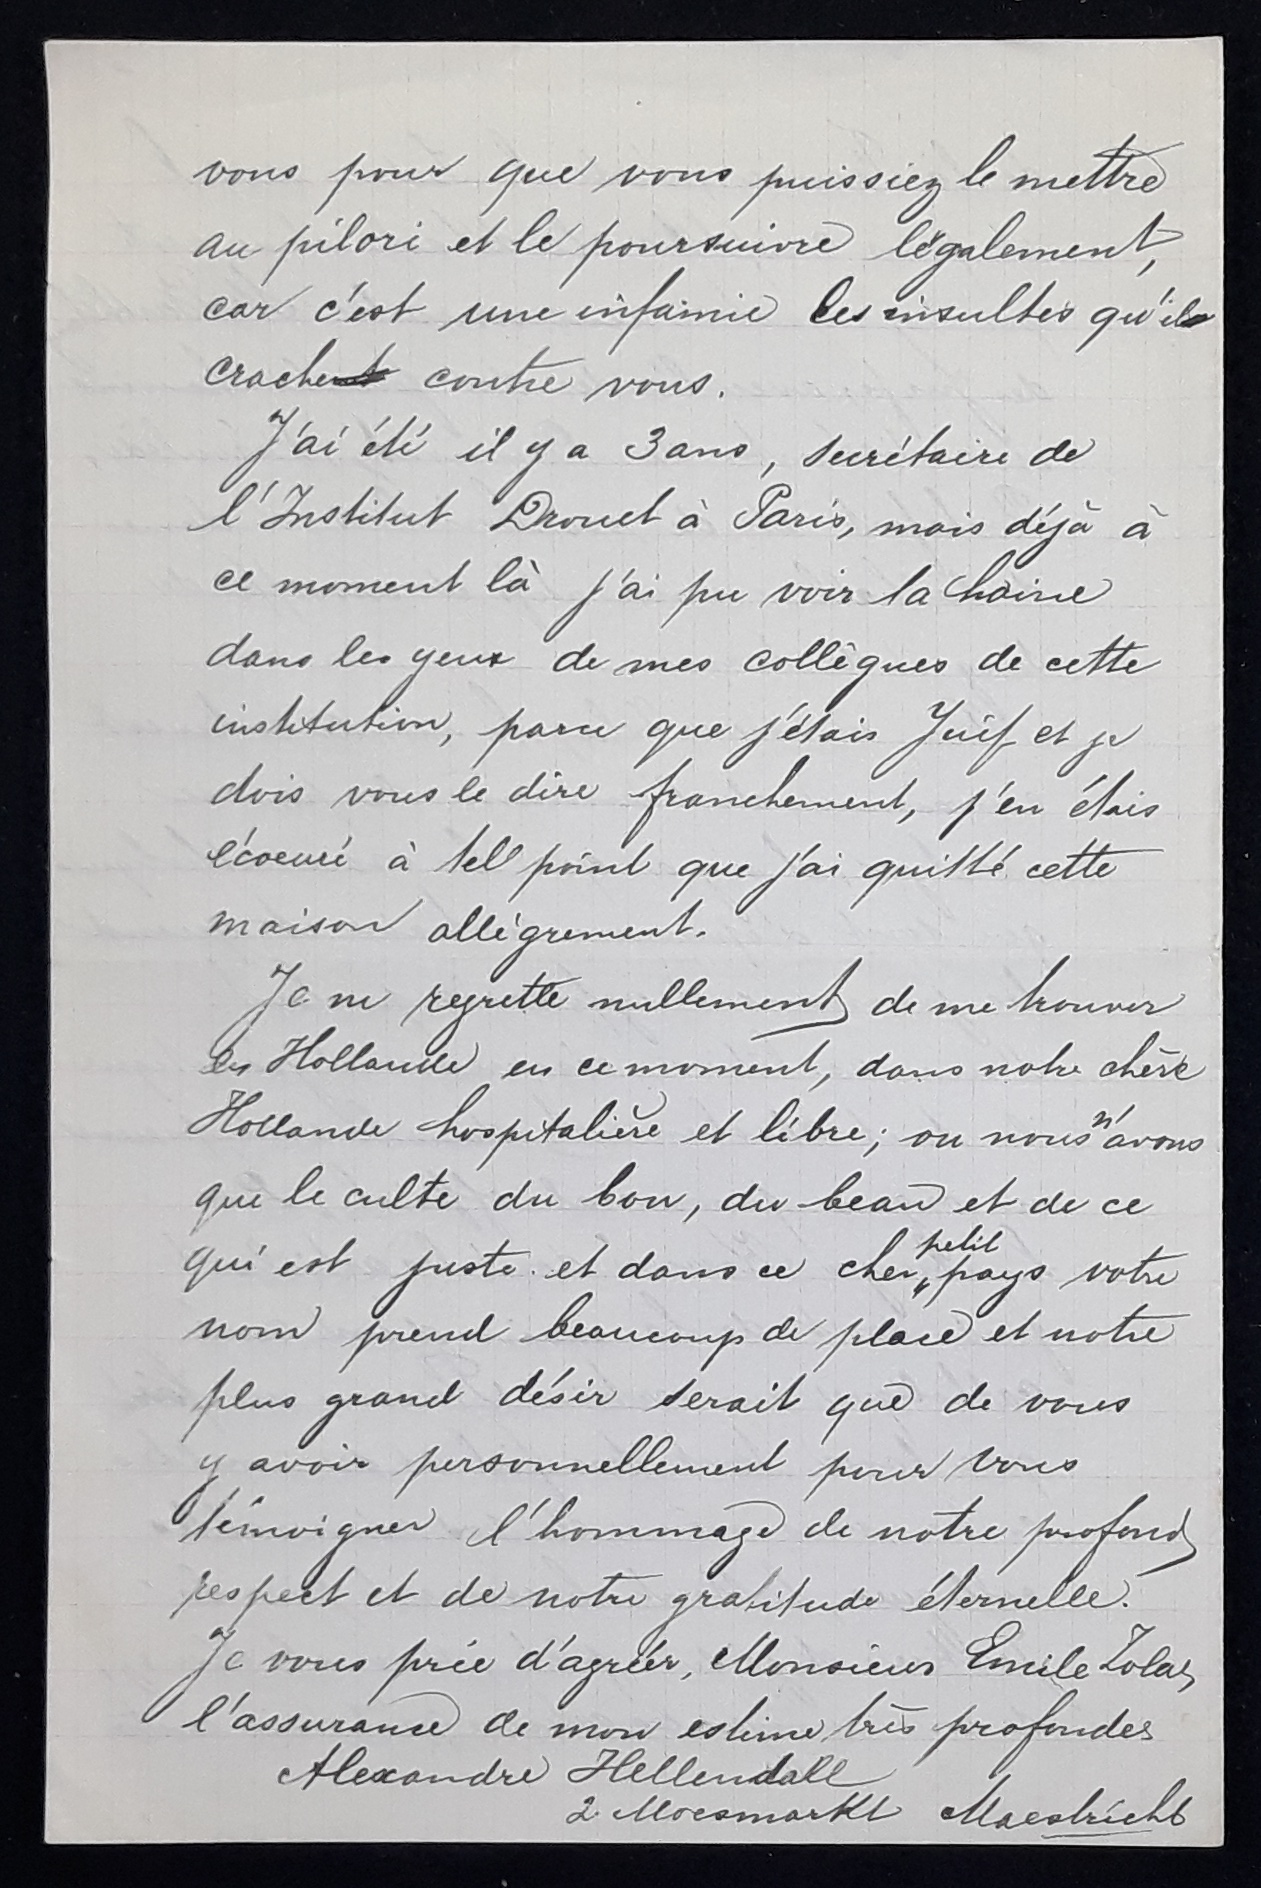 vous pour que vous puissiez le mettre
au pilori et le poursuivre légalement,
car c'est une infamie les insultes qu'il
crache contre vous.
J'ai été il y a 3 ans, secrétaire de
l'Institut Drouet à Paris, mais déjà à
ce moment là j'ai pu voir la haine
dans les yeux de mes collègues de cette
institution, parce que j'étais Juif et je
dois vous le dire franchement, j'en étais
écoeuré à tell point que j'ai quitté cette
maison allègrement.
Je ne regrette nullement de me trouver
en Hollande en ce moment, dans notre chère
Hollande hospitalière et libre; ou nous n'avons
que le culte du bon, du beau et de ce
qui est juste et dans ce cher petit pays votre
nom prend beaucoup de place et notre
plus grand désir serait que de vous
y avoir personnellement pour vous
témoigner l'hommage de notre profond
respect et de notre gratitude éternelle.
Je vous prie d'agréer, Monsieur Emile Zola,
l'assurance de mon estime très profonde
Alexandre Hellendall
2 Moesmarkt Maestricht